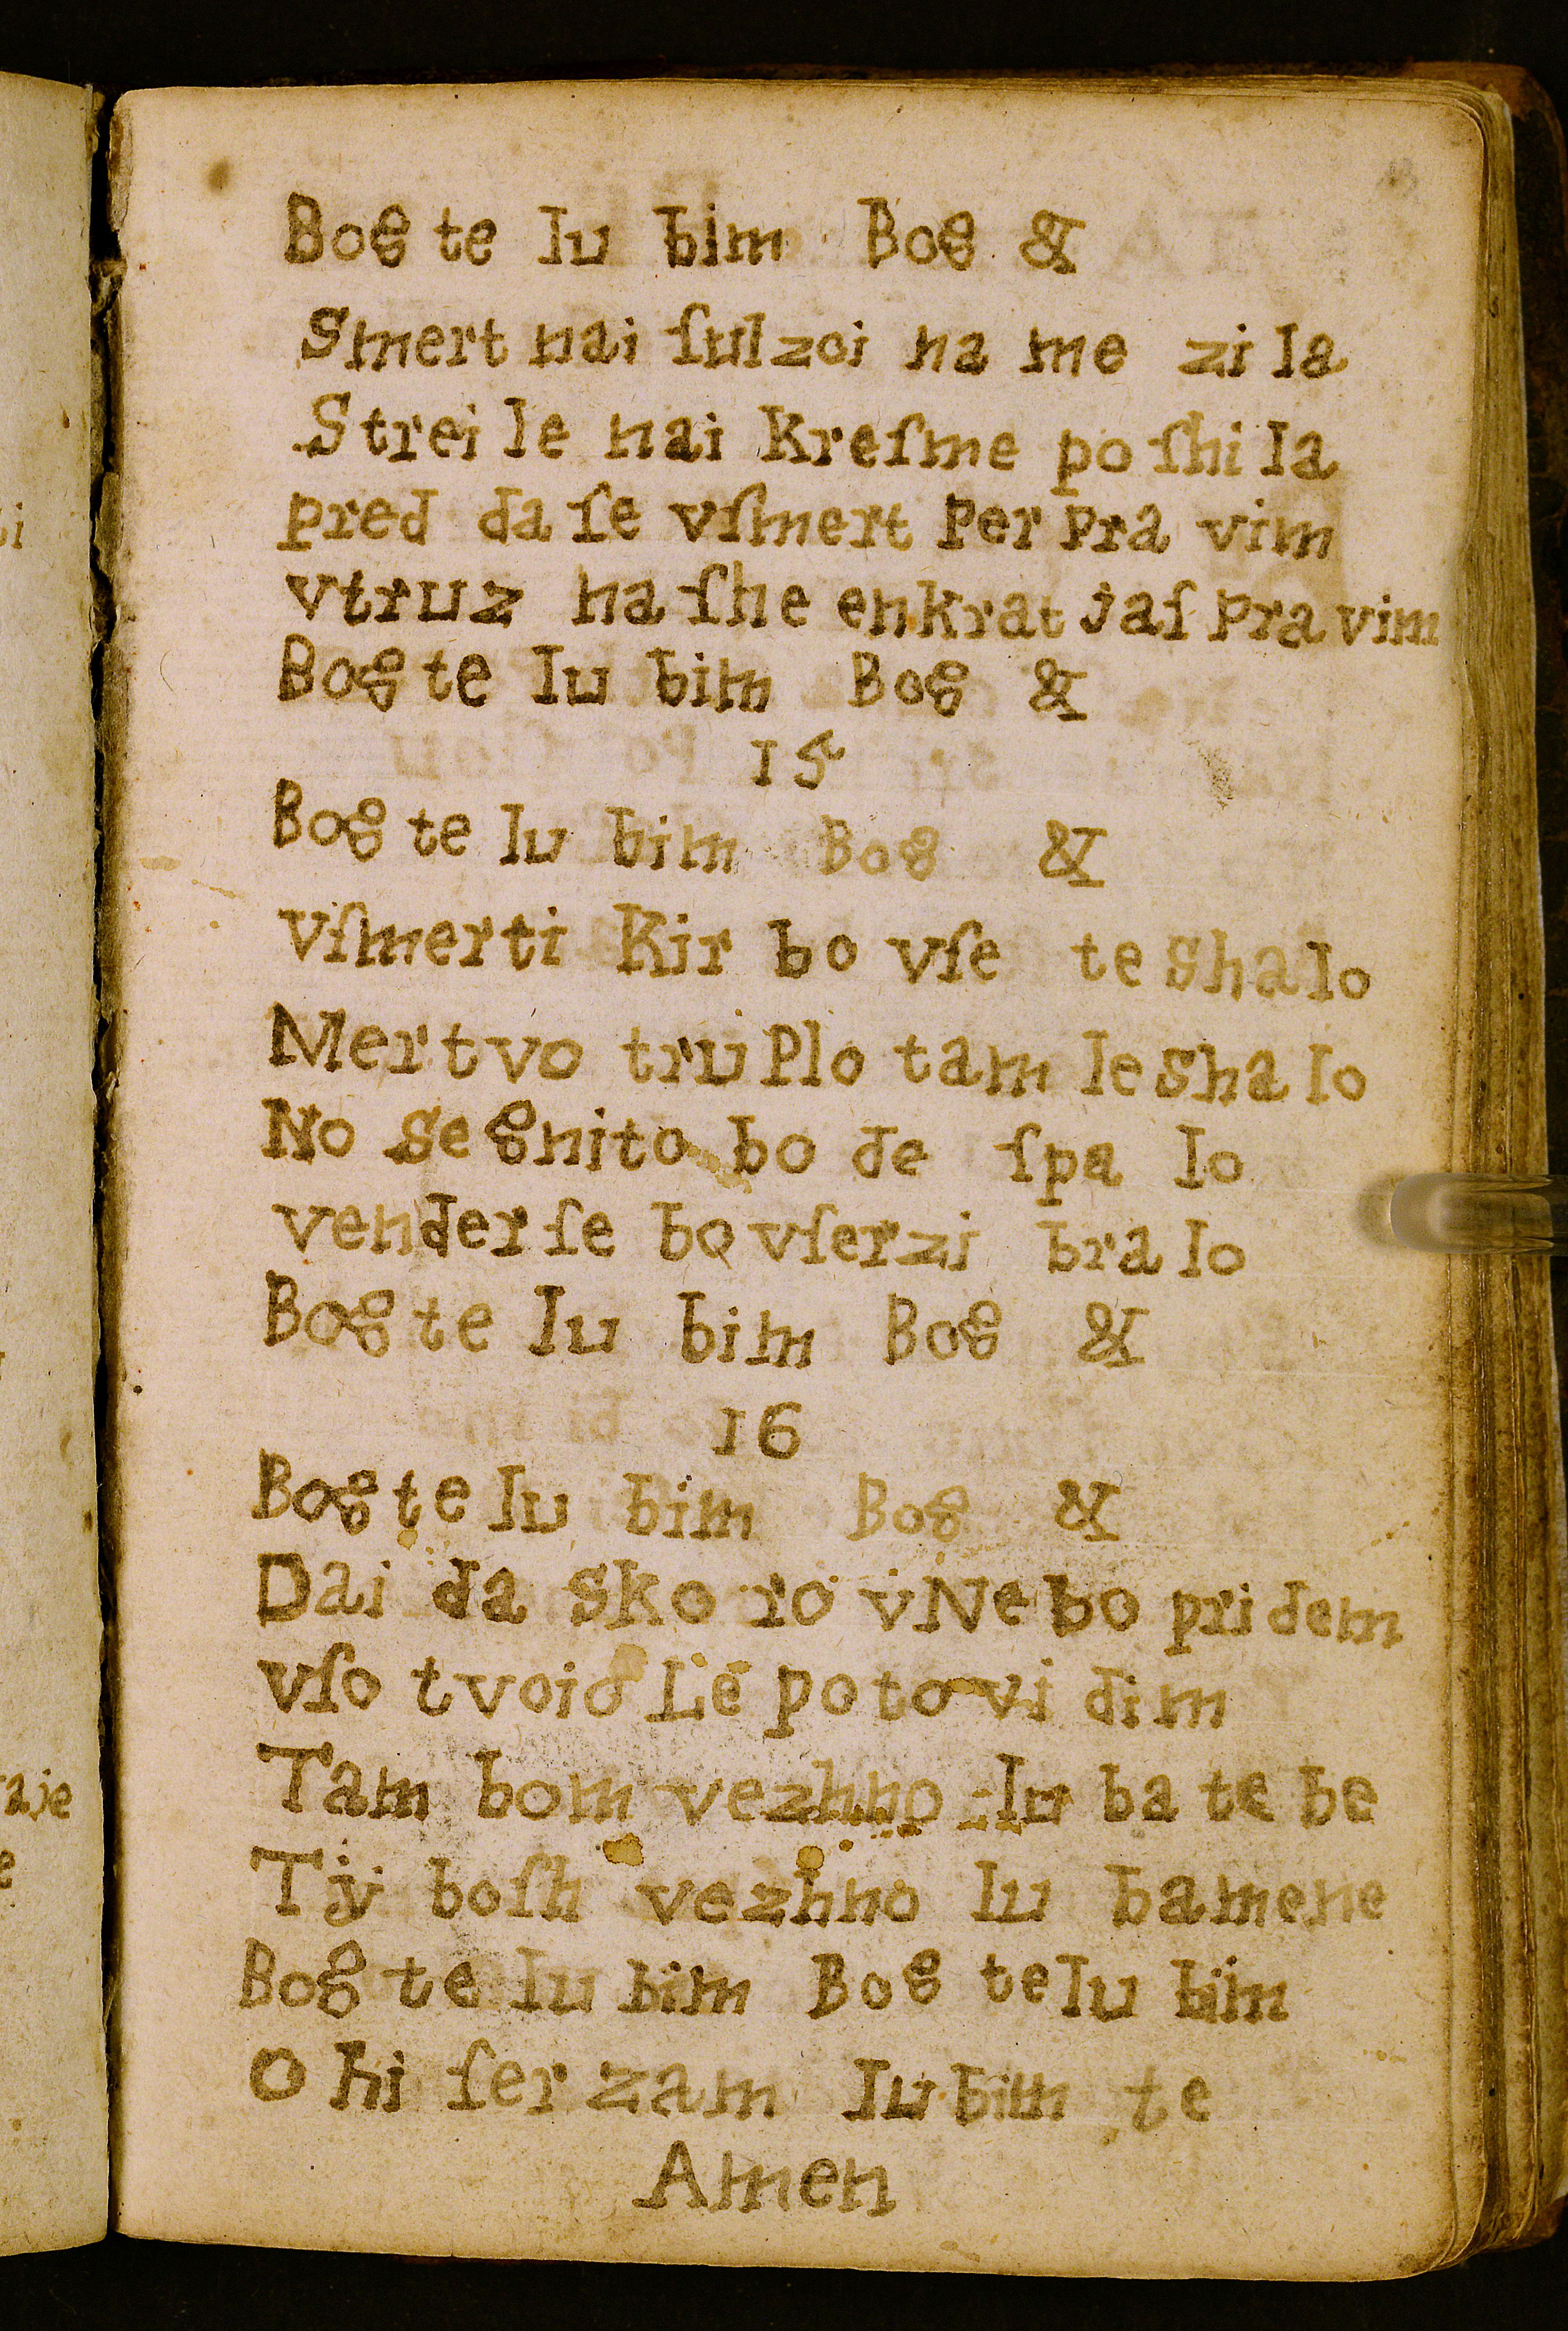 Bog te lu bim Bog &
Smert nai ſulzoi na me zi la
Strei le nai Kreſme po ſhi la
pred da ſe vſmert Per Pra vim
vtruz na ſhe enkrat jaſ Pra vim
Bog te lu bim Bog &
15
Bog te lu bim Bog &
Vſmerti Kir bo vſe te shalo
Mertvo truPlo tam leshalo
No se gnito bo de ſpa lo
vender ſe bo vſerzi bra lo
Bog te lu bim Bog &
16
Bog te lu bim Bog &
Dai da sko ro vNe bo pri dem
vſo tvoio Le po to vi dim
Tam bom vezhno lu ba te be
Tÿ boſh vezhno lu bamene
Bog te lu bim Bog te lu bim
O hi ſer zam lu bim te
Amen